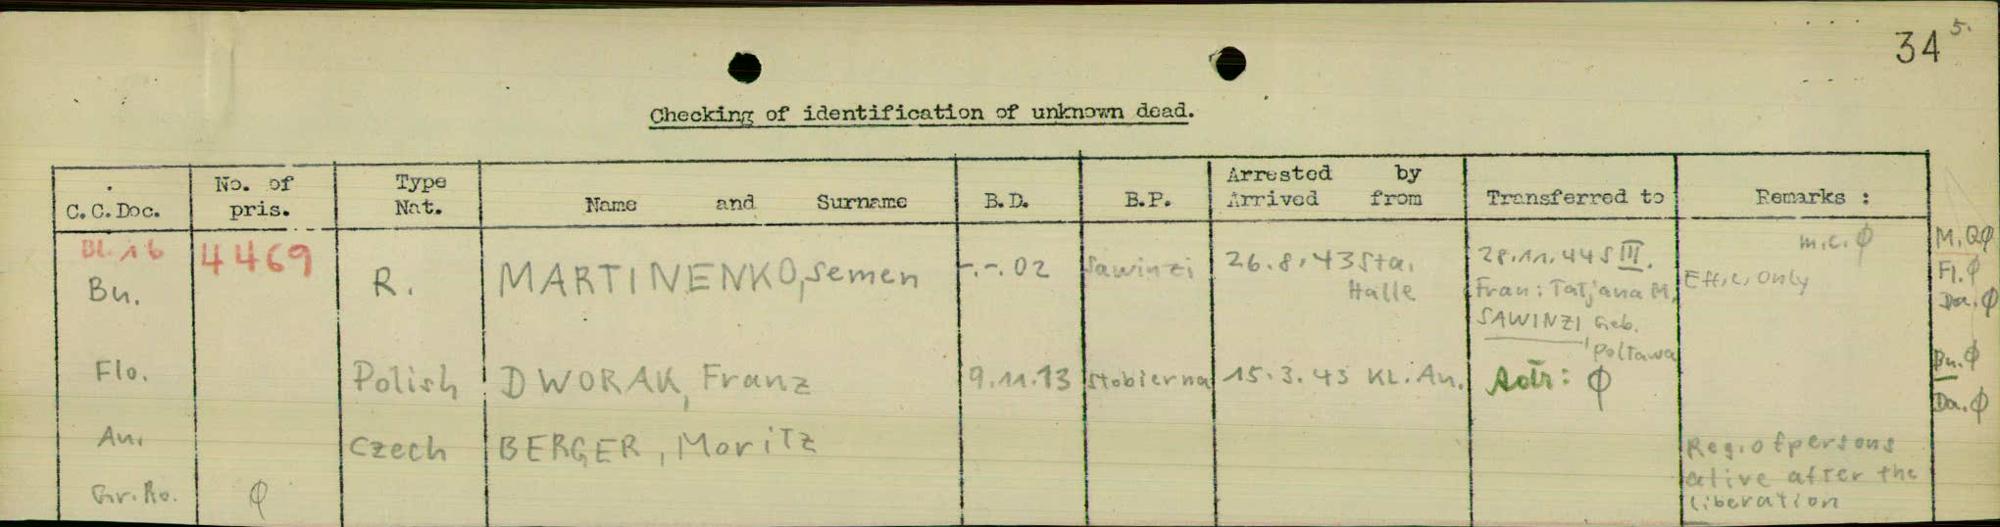 34 5.
Checking of identification of unknown dead.
C.C.Doc. No. of pris. Type Nat. Name and Surname B.D. B.P. Arrested by Arrived from Transferred to Remarks :
Bl. 16 4469 m.c. Ø M. Ø
Bu. R. MARTINENKO, Semen -.-.02 Sawinzi 26.8.43 Sta. 28.11.44 S III. Eff. c. Only Fl. Ø
Halle Frau: Tatjana M. Da. Ø
SAWINZI Geb.
Poltawa
Flo. Polish DWORAK, Franz 9.11.13 Stobierna 15.3.43 KL. Au. Adr: Ø Bu. Ø
Da. Ø
Au. Czech BERGER, Moritz Reg. of persons
alive after the
Gr. Ro. Ø liberation